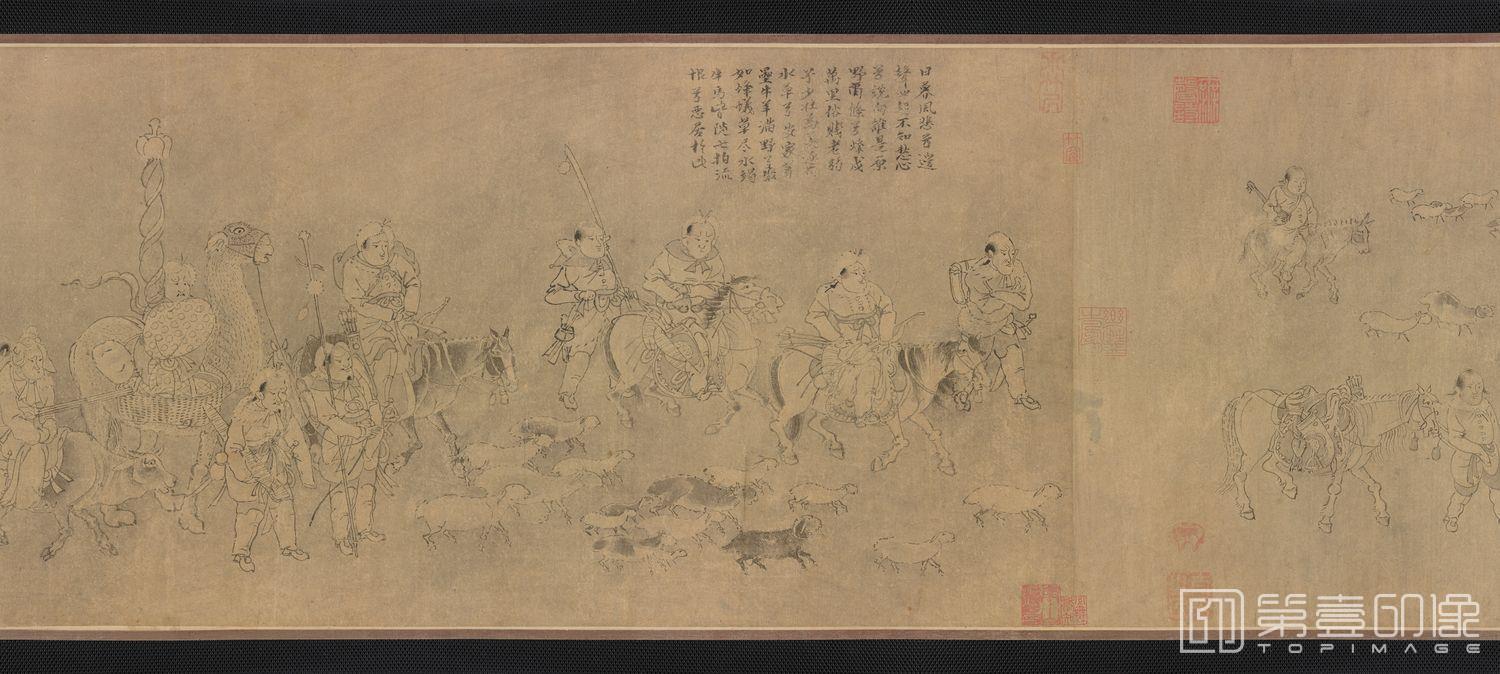 日暮風悲兮邊
聲四起不知愁心
兮說向誰是原
野蕭條兮烽戍
萬里俗賤老弱
兮少壯為美逐有
水草兮安家葺
壘牛羊滿野兮聚
如蜂蟻草盡水竭
羊馬皆徙七拍流
恨兮惡居於此
第壹印像
TOPIMAGE